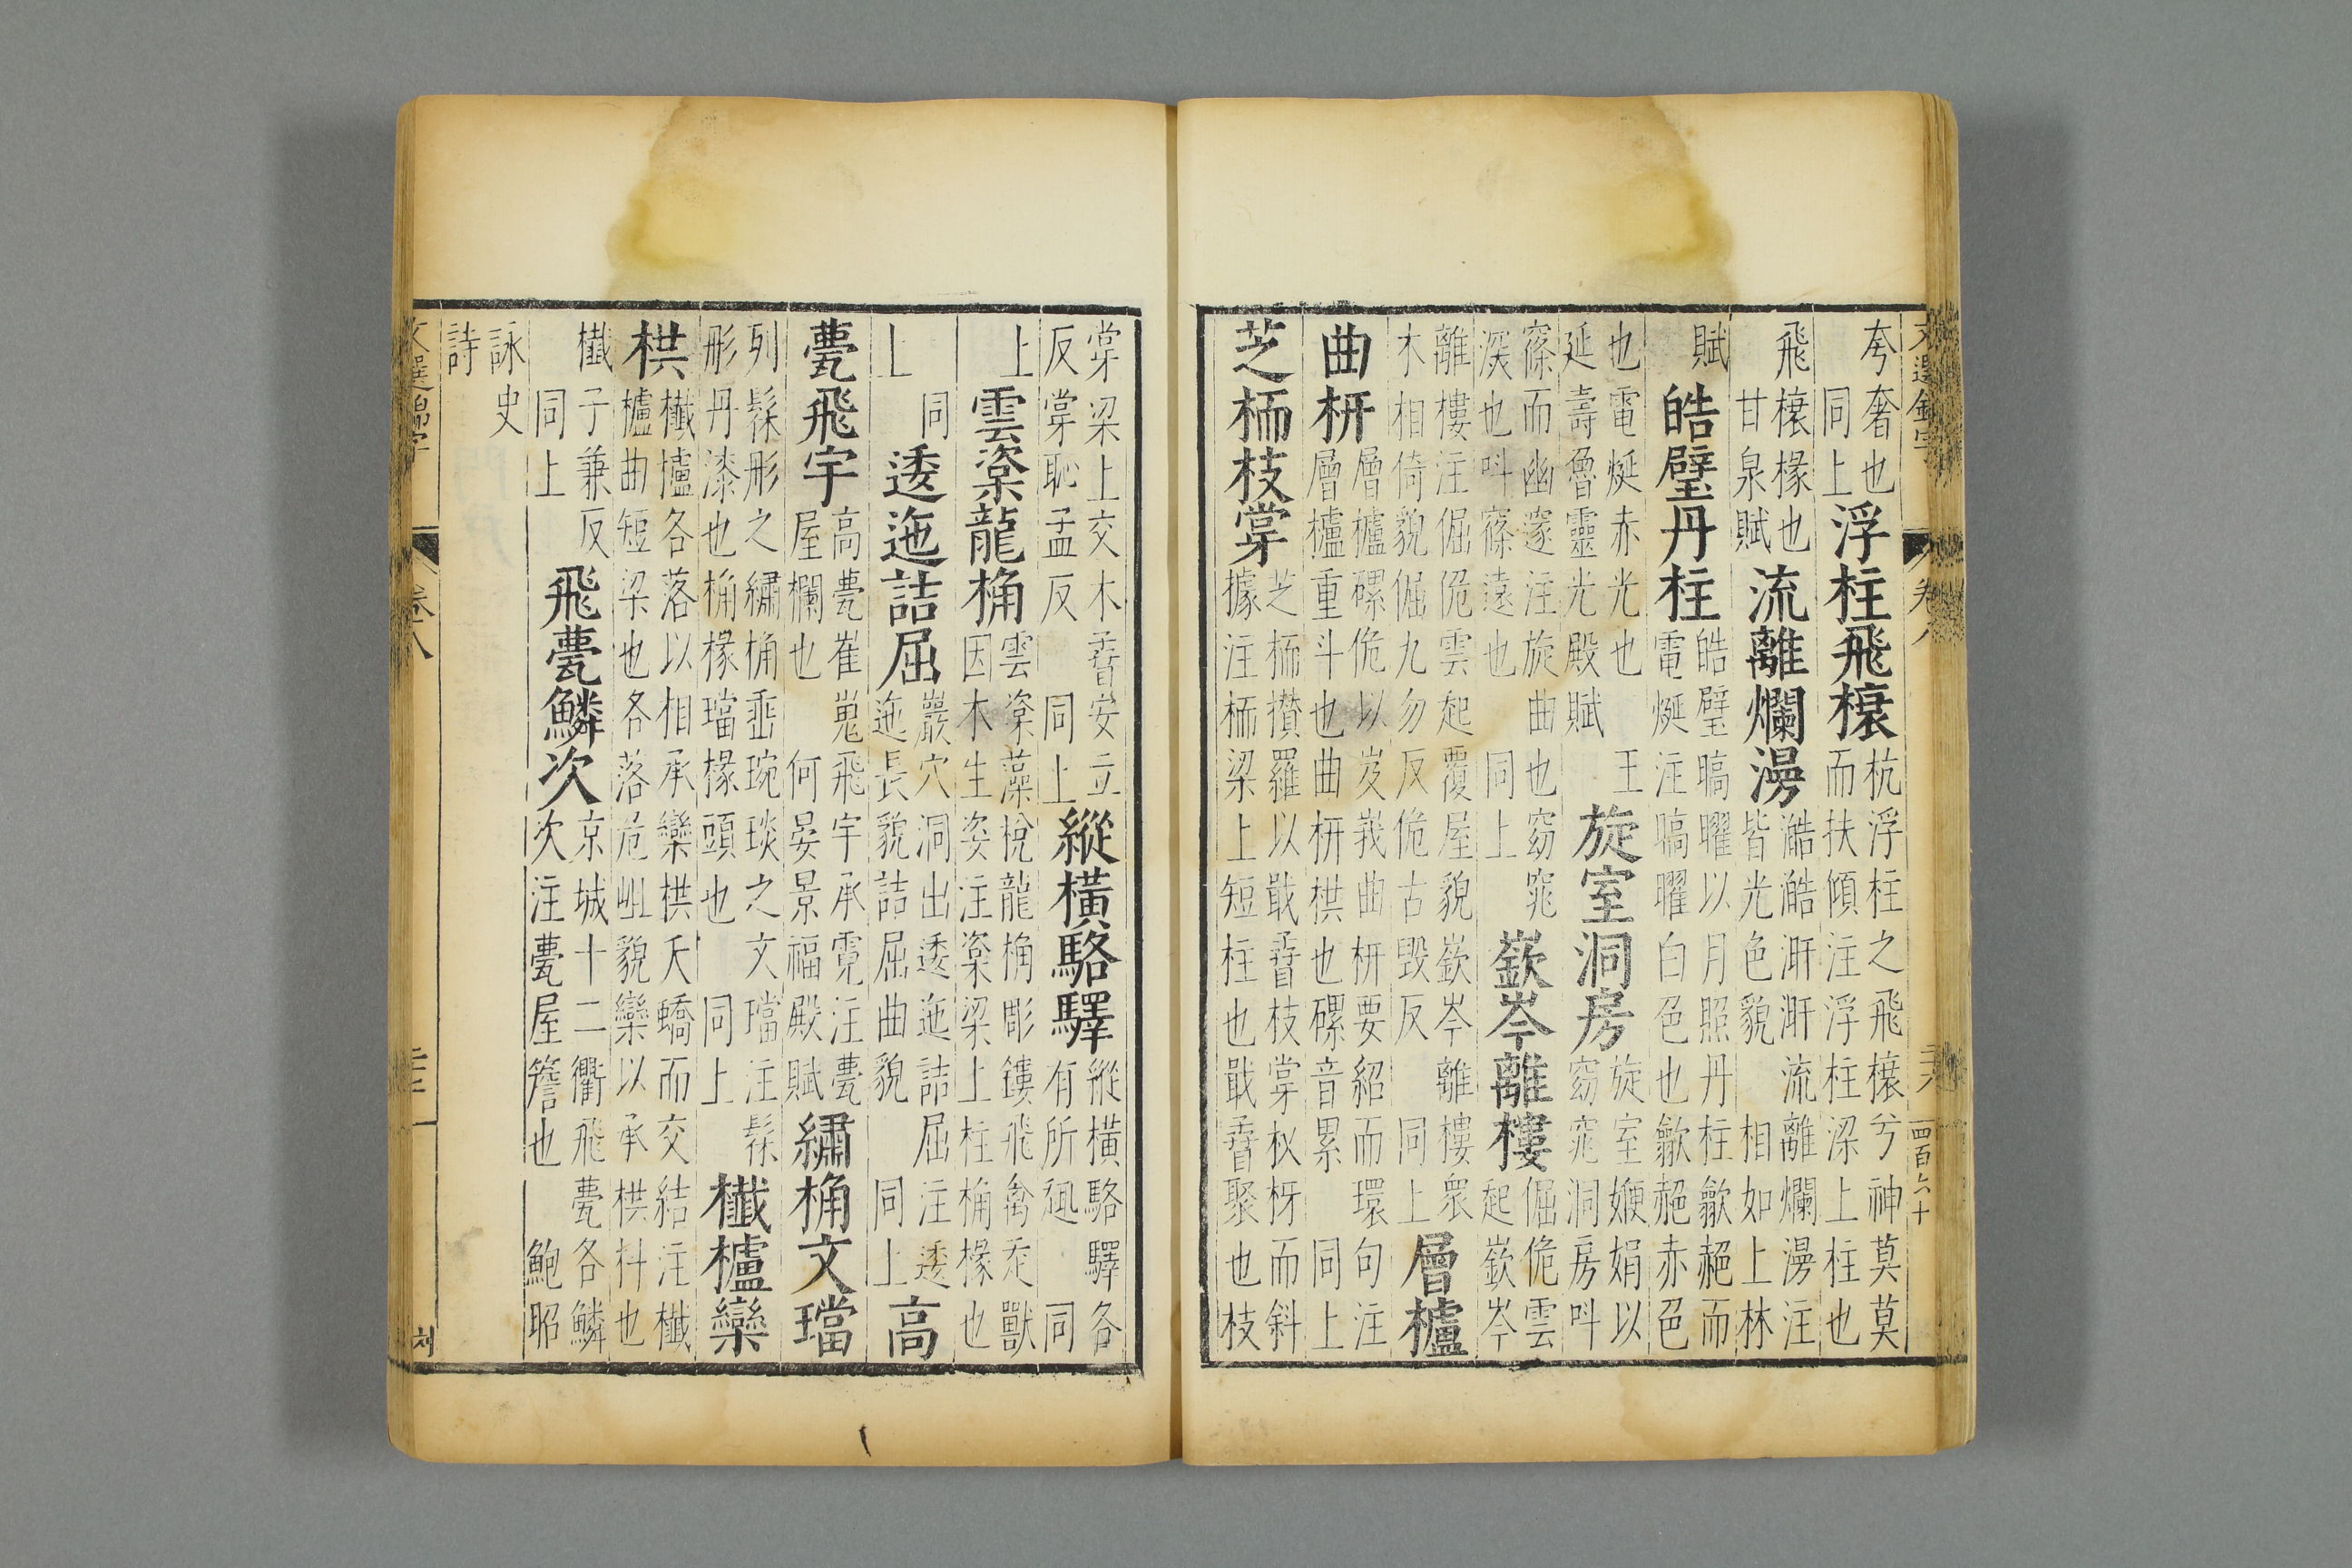 文選錦字 卷八 四百六十
夸奢也
同上
浮柱飛榱
杭浮柱之飛榱兮神莫莫
而扶傾注浮柱梁上柱也
飛榱椽也
甘泉賦
流離爛漫
澔澔涆涆流離爛漫注
皆光色貌 相如上林
賦
皓璧丹柱
皓璧暠曜以月照丹柱歙赩而
電烻注暠曜白色也歙赩赤色
也電烻赤光也 王
延壽魯靈光殿賦
旋室洞房
旋室㛹娟以
窈窕洞房叫
窱而幽邃注旋曲也窈窕
深也叫窱遠也 同上
嶔岑離樓
倔佹雲
起嶔岑
離樓注倔佹雲起覆屋貌嶔岑離樓衆
木相倚貌倔九勿反佹古毀反 同上
層櫨
曲枅
層櫨磥佹以岌峩曲枅要紹而環句注
層櫨重斗也曲枅栱也磥音累 同上
芝栭枝牚
芝栭攢羅以戢孴枝牚杈枒而斜
據注栭梁上短柱也戢孴聚也枝
牚梁上交木孴安立
反牚恥孟反 同上
縱橫駱驛
縱橫駱驛各
有所趣 同
上
雲楶龍桷
雲楶藻梲龍桷彫鏤飛禽走獸
因木生姿注楶梁上柱桷椽也
同
上
逶迤詰屈
巖穴洞出逶迤詰屈注逶
迤長貌詰屈曲貌 同上
高
甍飛宇
高甍崔嵬飛宇承霓注甍
屋欄也 何晏景福殿賦
繡桷文璫
列髹彤之繡桷垂琬琰之文璫注髹
彤丹漆也桷椽璫椽頭也 同上
櫼櫨欒
栱
櫼櫨各落以相承欒栱夭蟜而交結注櫼
櫨曲短梁也各落危岨貌欒以承栱枓也
櫼子兼反
同上
飛甍鱗次
京城十二衢飛甍各鱗
次注甍屋簷也 鮑昭
詠史
詩
文選錦字 卷八